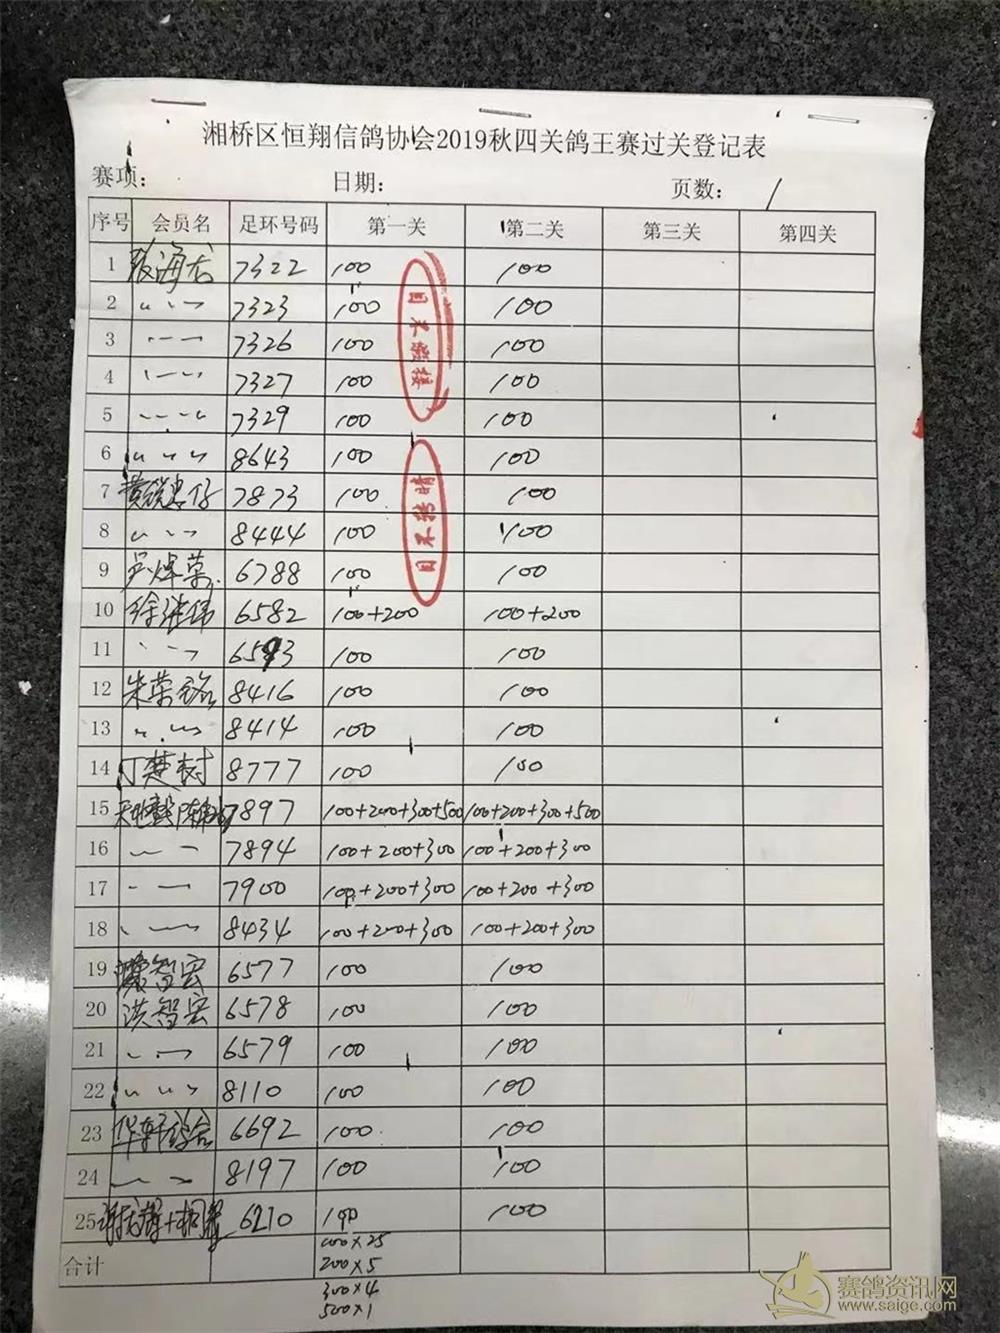 湘桥区恒翔信鸽协会2019秋四关鸽王赛过关登记表
赛项： 日期： 页数： /
序号 会员名 足环号码 第一关 第二关 第三关 第四关
1 张海龙 7322 100 100
2 〃 〃 7323 100 100
3 〃 〃 7326 100 100
4 〃 〃 7327 100 100
5 〃 〃 7329 100 100
6 〃 〃 8643 100 100
7 7873 100 100
8 〃 〃 8444 100 100
9 6788 100 100
10 6582 100+200 100+200
11 〃 〃 6593 100 100
12 朱荣铭 8416 100 100
13 〃 〃 8414 100 100
14 丁楚树 8777 100 100
15 7897 100+200+300+500 100+200+300+500
16 〃 〃 7894 100+200+300 100+200+300
17 〃 〃 7900 100+200+300 100+200+300
18 〃 〃 8434 100+200+300 100+200+300
19 智宏 6577 100 100
20 洪智宏 6578 100 100
21 〃 〃 6579 100 100
22 〃 〃 8110 100 100
23 华轩综合 6692 100 100
24 〃 〃 8197 100 100
25 6210 100 100
合计 100×25
200×5
300×4
500×1
赛鸽资讯网
www.saige.com